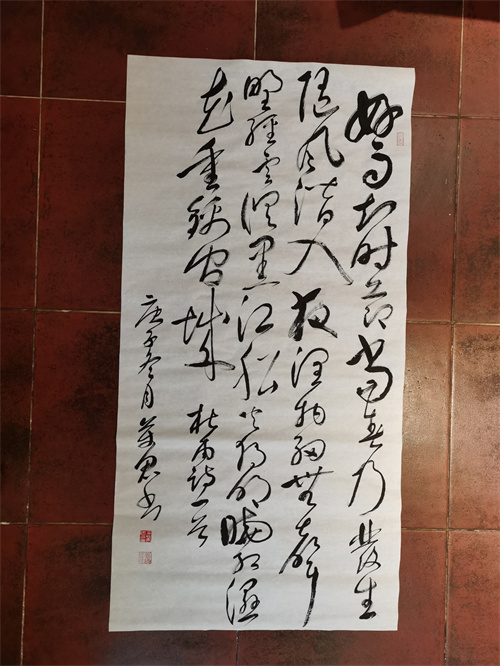 好雨知时节当春乃發生
随风潜入夜润物細無聲
野径云俱黑江船火独明晓红湿
花重锦官城 杜甫诗一首
庚子冬月 书